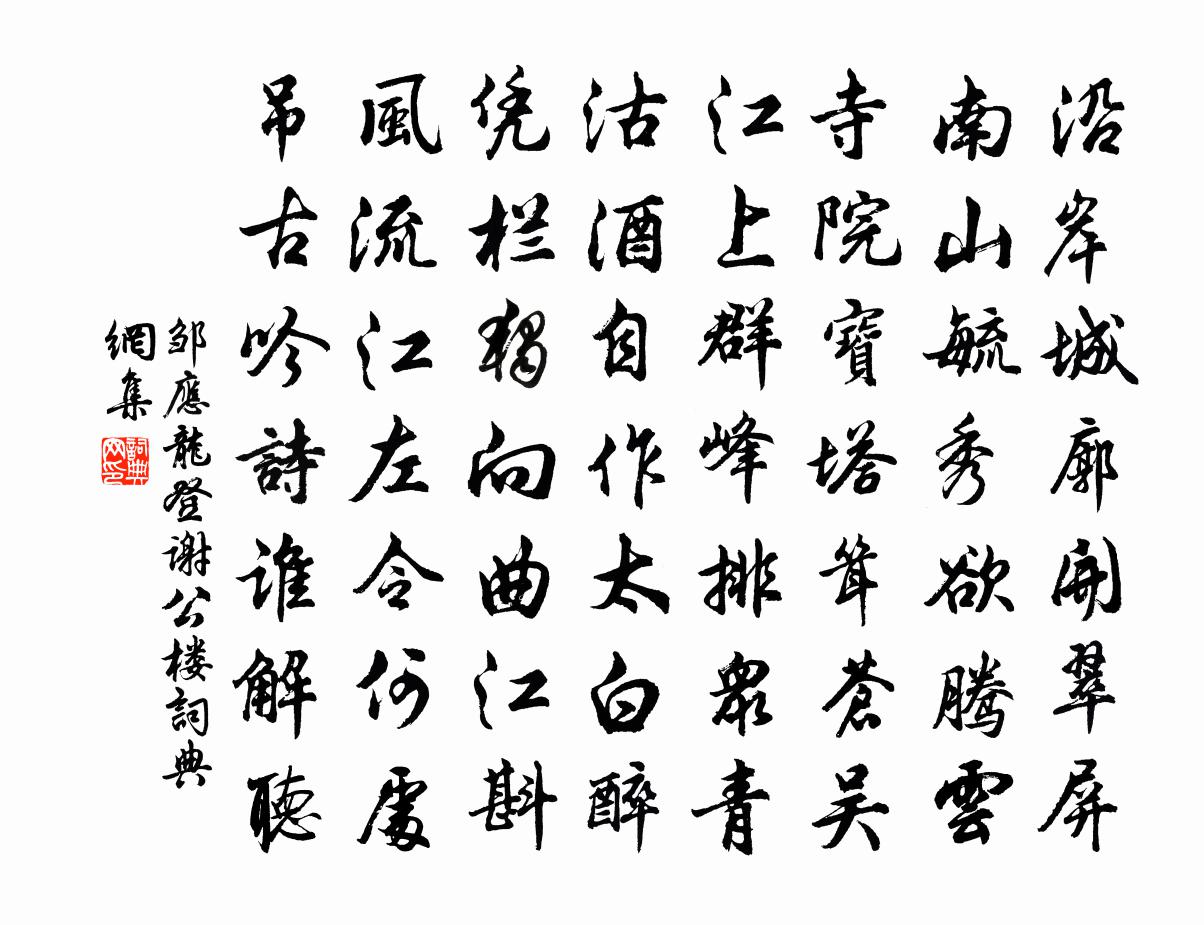 沿岸城廓開翠屏
南山毓秀欲騰雲
寺院寶塔聳蒼吴
江上群峰排衆青
沽酒自作太白醉
凭栏獨向曲江斟
風流江左令何處
吊古吟詩谁解聴
邹應龍登谢公楼詞典
網集
詞典
网印